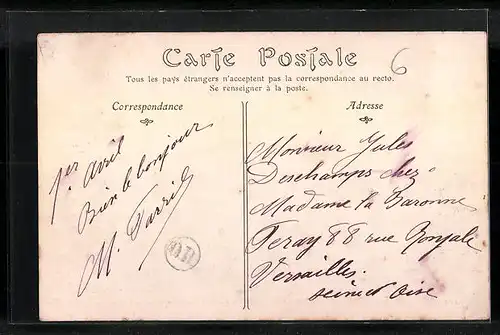 Carte Postale
6
Tous les pays étrangers n'acceptent pas la correspondance au recto.
Se renseigner à la poste.
Correspondance
Adresse
1er avril
Bien le bonjour
M.
Monsieur Jules
Deschamps chez
Madame la Baronne
Feray 88 rue
Versailles.
seine et Oise